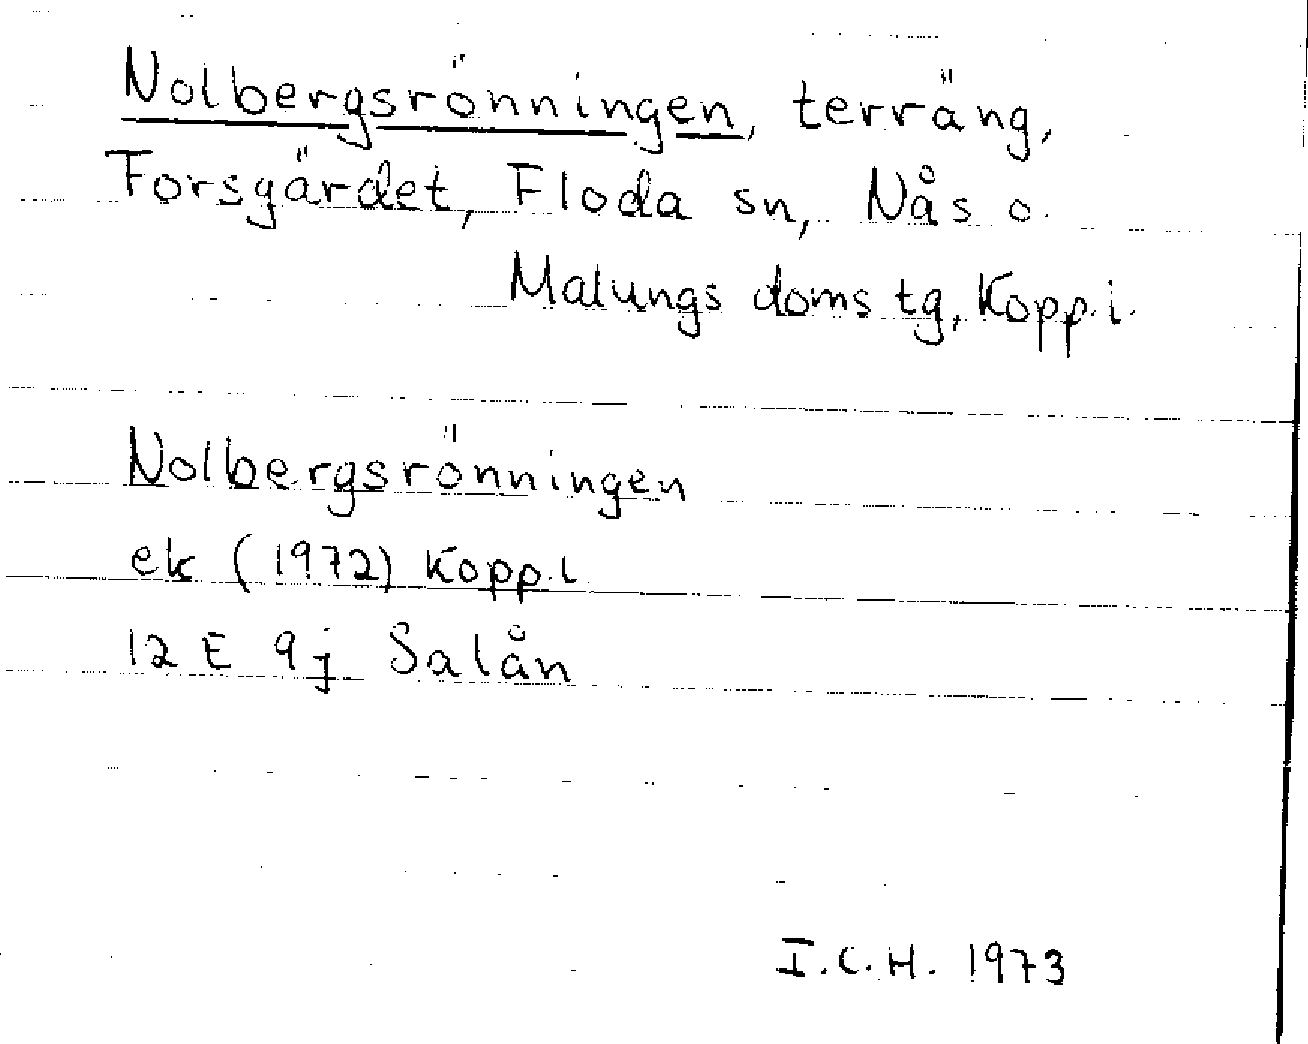 Nolbergsrönningen, terräng,
Forsgärdet, Floda sn, Nås o.
Malungs doms tg, Kopp. l.
Nolbergsrönningen
ek (1972) Kopp. l
12 E 9j Salån
I.C.H. 1973